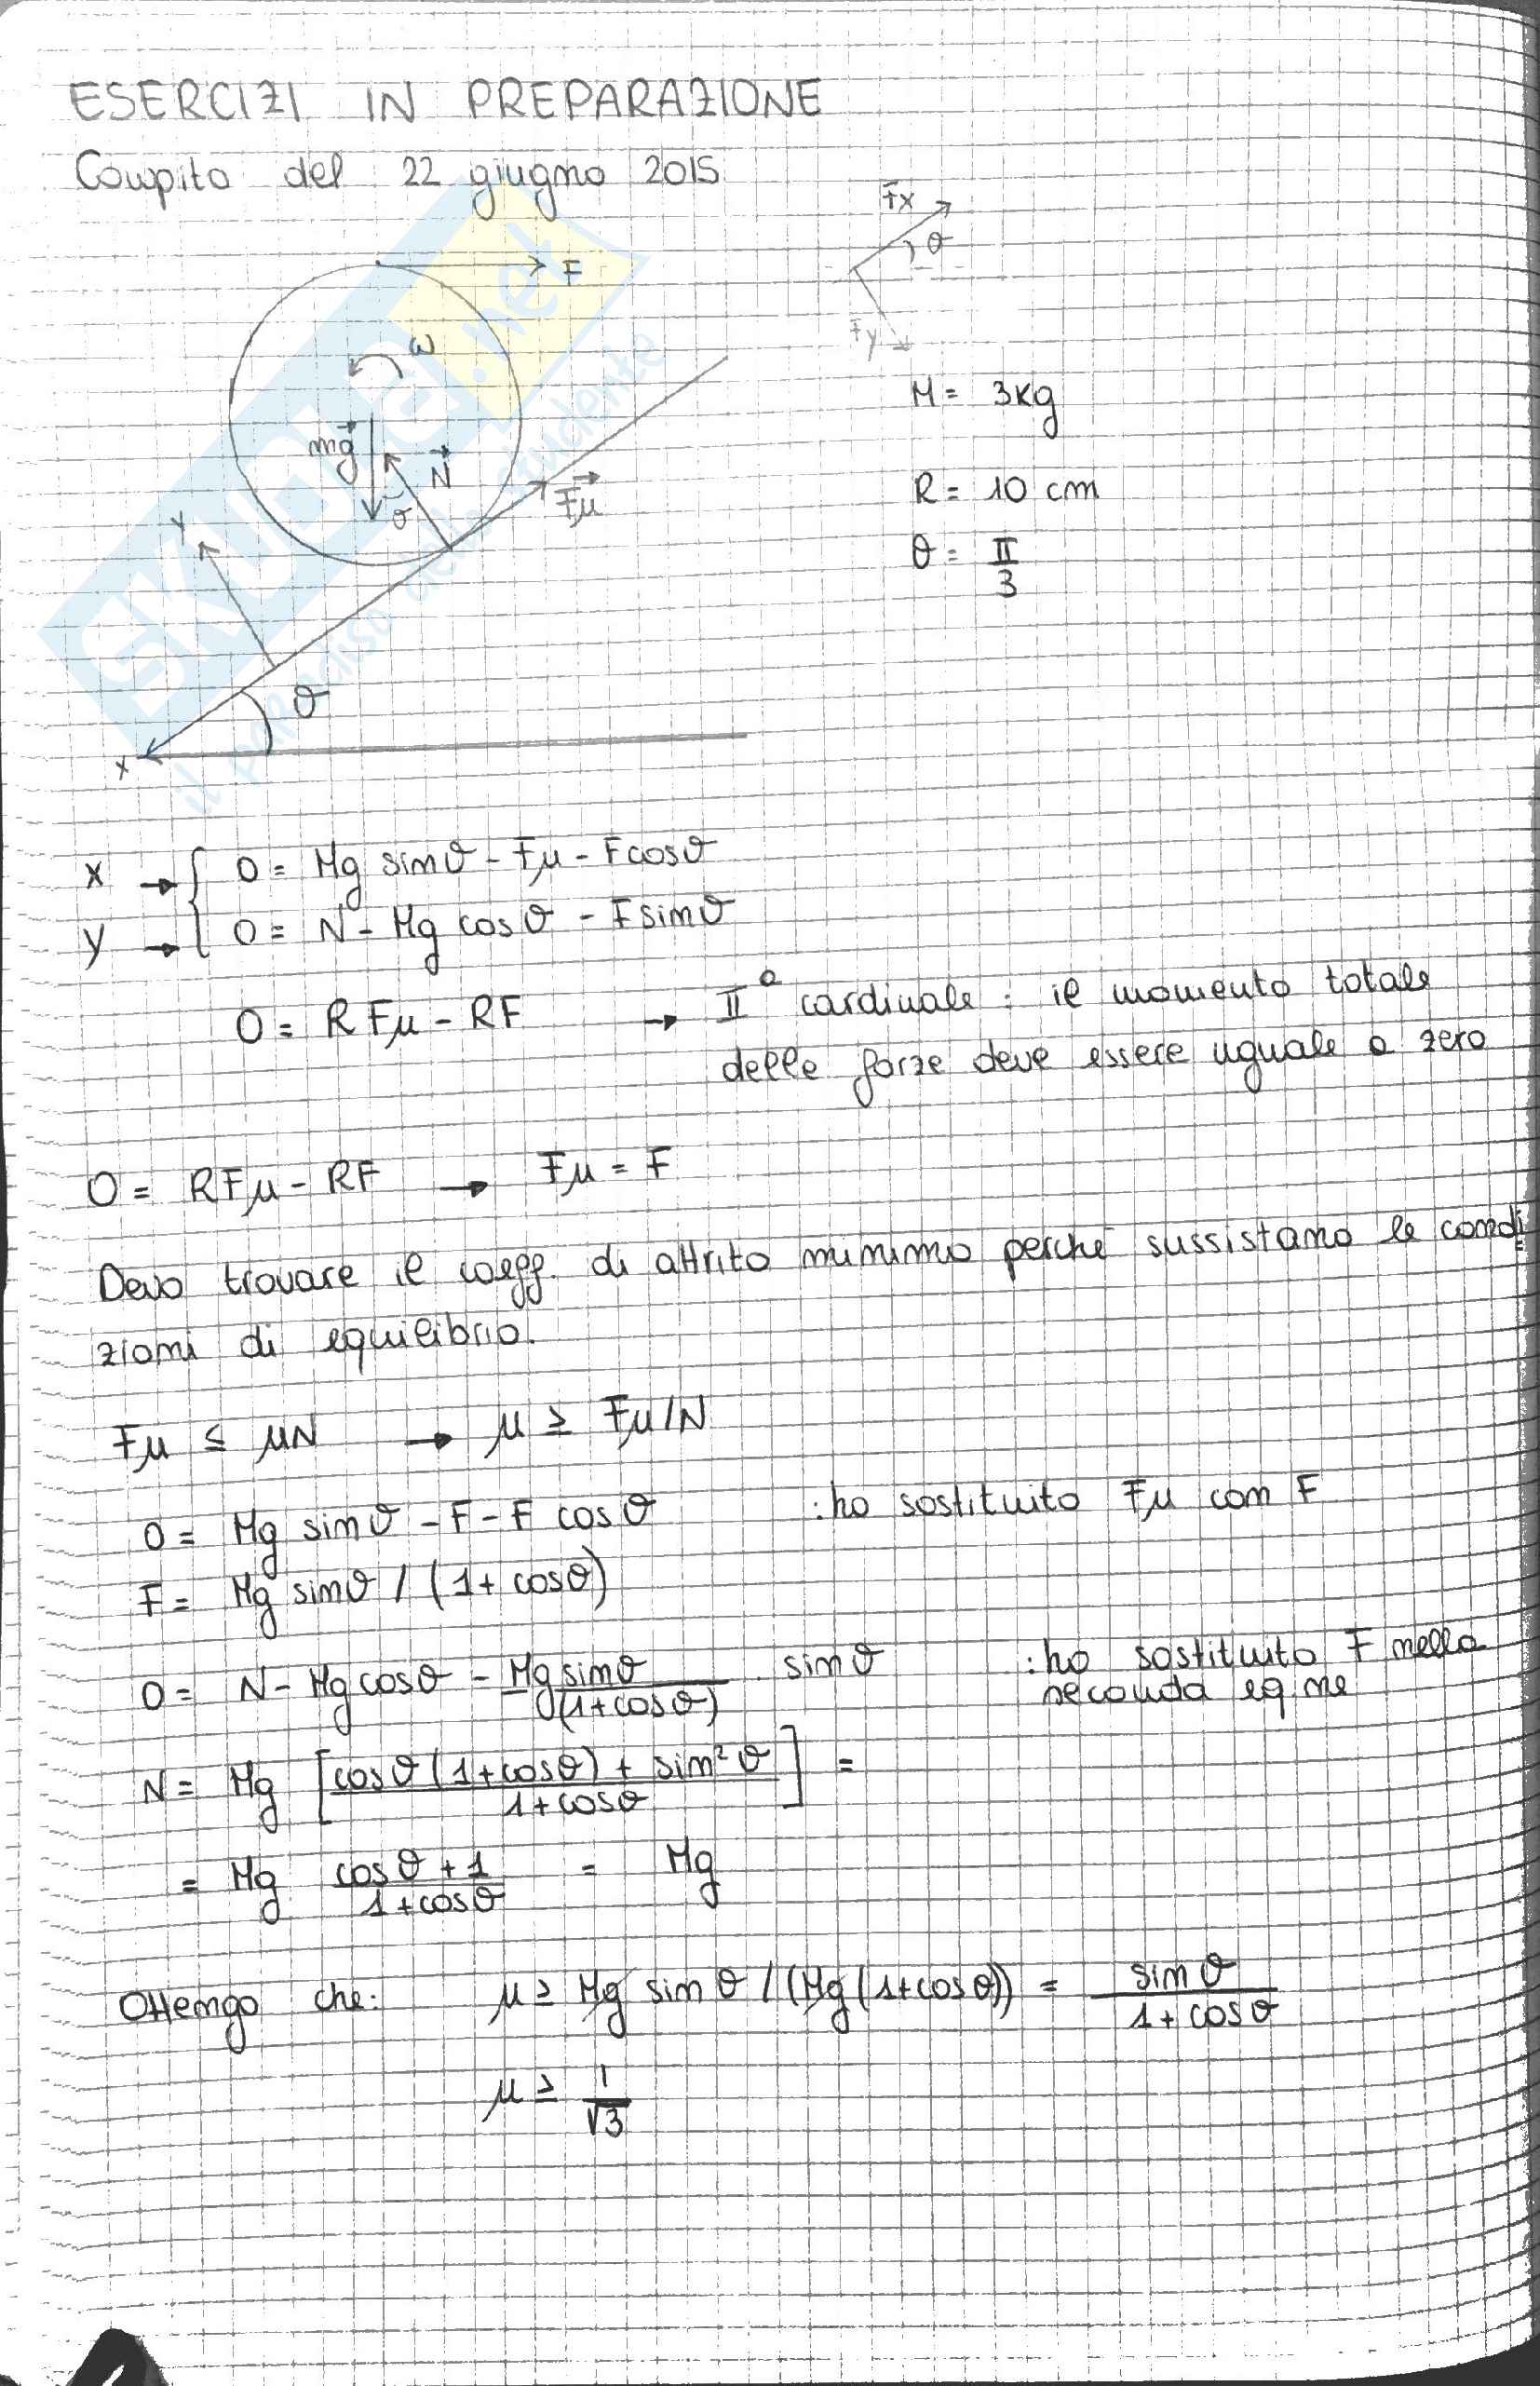 ESERCIZI IN PREPARAZIONE
Compito del 22 giugno 2015
Fx
θ
Fy
F
ω
mg
N
θ
Fμ
y
θ
x
M = 3kg
R = 10 cm
θ = π/3
SKUOLA.net
il paradiso dello studente
x → { 0 = Mg sinθ - Fμ - Fcosθ
y → { 0 = N - Mg cosθ - Fsinθ
0 = RFμ - RF → IIª cardinale : il momento totale
delle forze deve essere uguale a zero
0 = RFμ - RF → Fμ = F
Devo trovare il coeff. di attrito minimo perché sussistano le condi
zioni di equilibrio.
Fμ ≤ μN → μ ≥ Fμ/N
0 = Mg sinθ - F - F cosθ : ho sostituito Fμ con F
F = Mg sinθ / (1+ cosθ)
0 = N - Mg cosθ - Mg sinθ/(1+cosθ) · sinθ : ho sostituito F nella
seconda eq.ne
N = Mg [cosθ(1+cosθ) + sin²θ / 1+cosθ] =
= Mg cosθ+1 / 1+cosθ = Mg
Ottengo che: μ ≥ Mg sinθ / (Mg(1+cosθ)) = sinθ / 1+cosθ
μ ≥ 1/√3